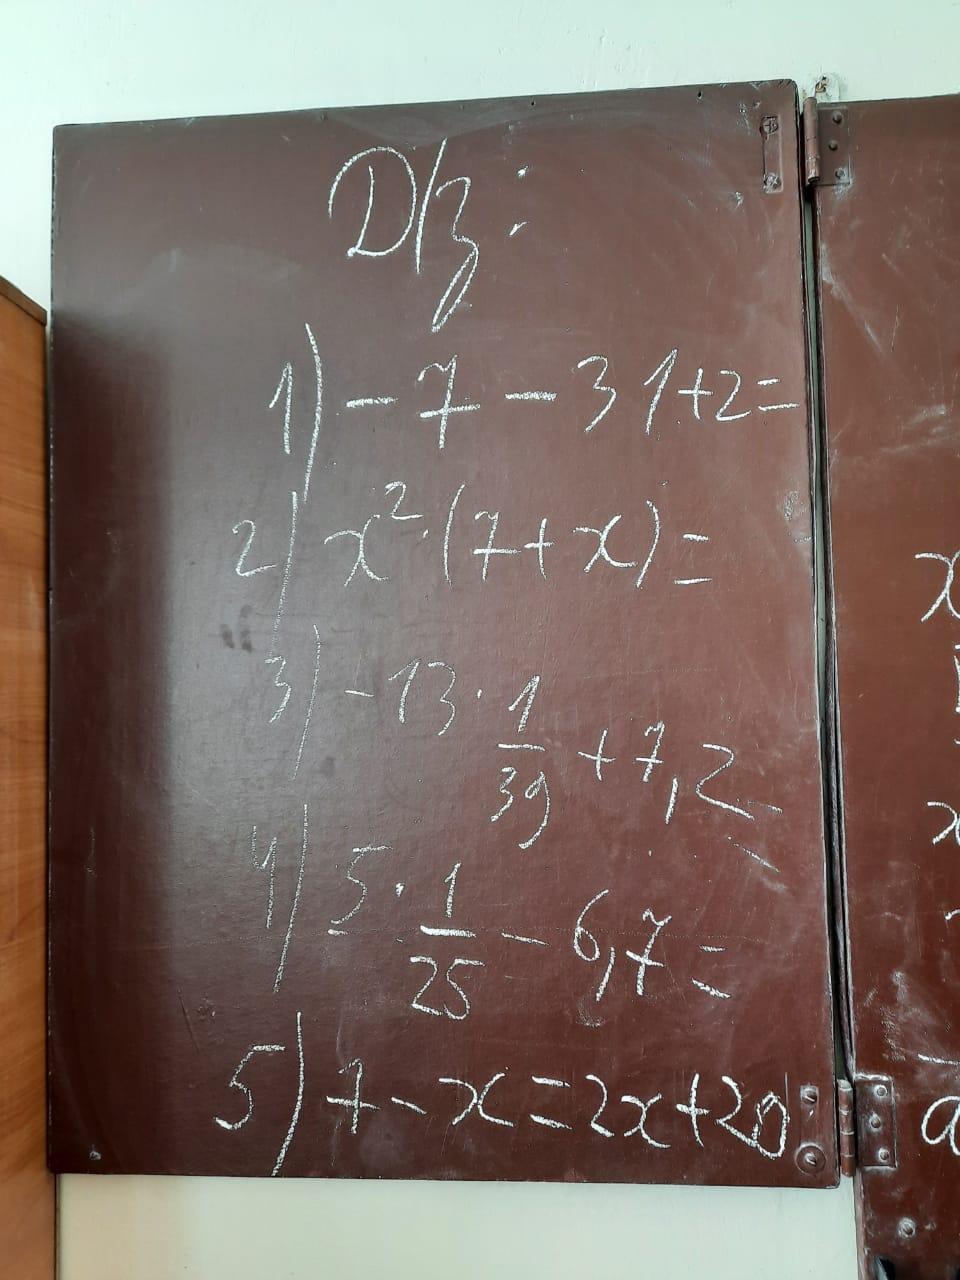 D/з:
1) - 7 - 31+2=
2) x²·(7+x)=
3) -13 · 1/39 + 7,2=
4) 5 · 1/25 - 6,7=
5) 7 - x = 2x+20